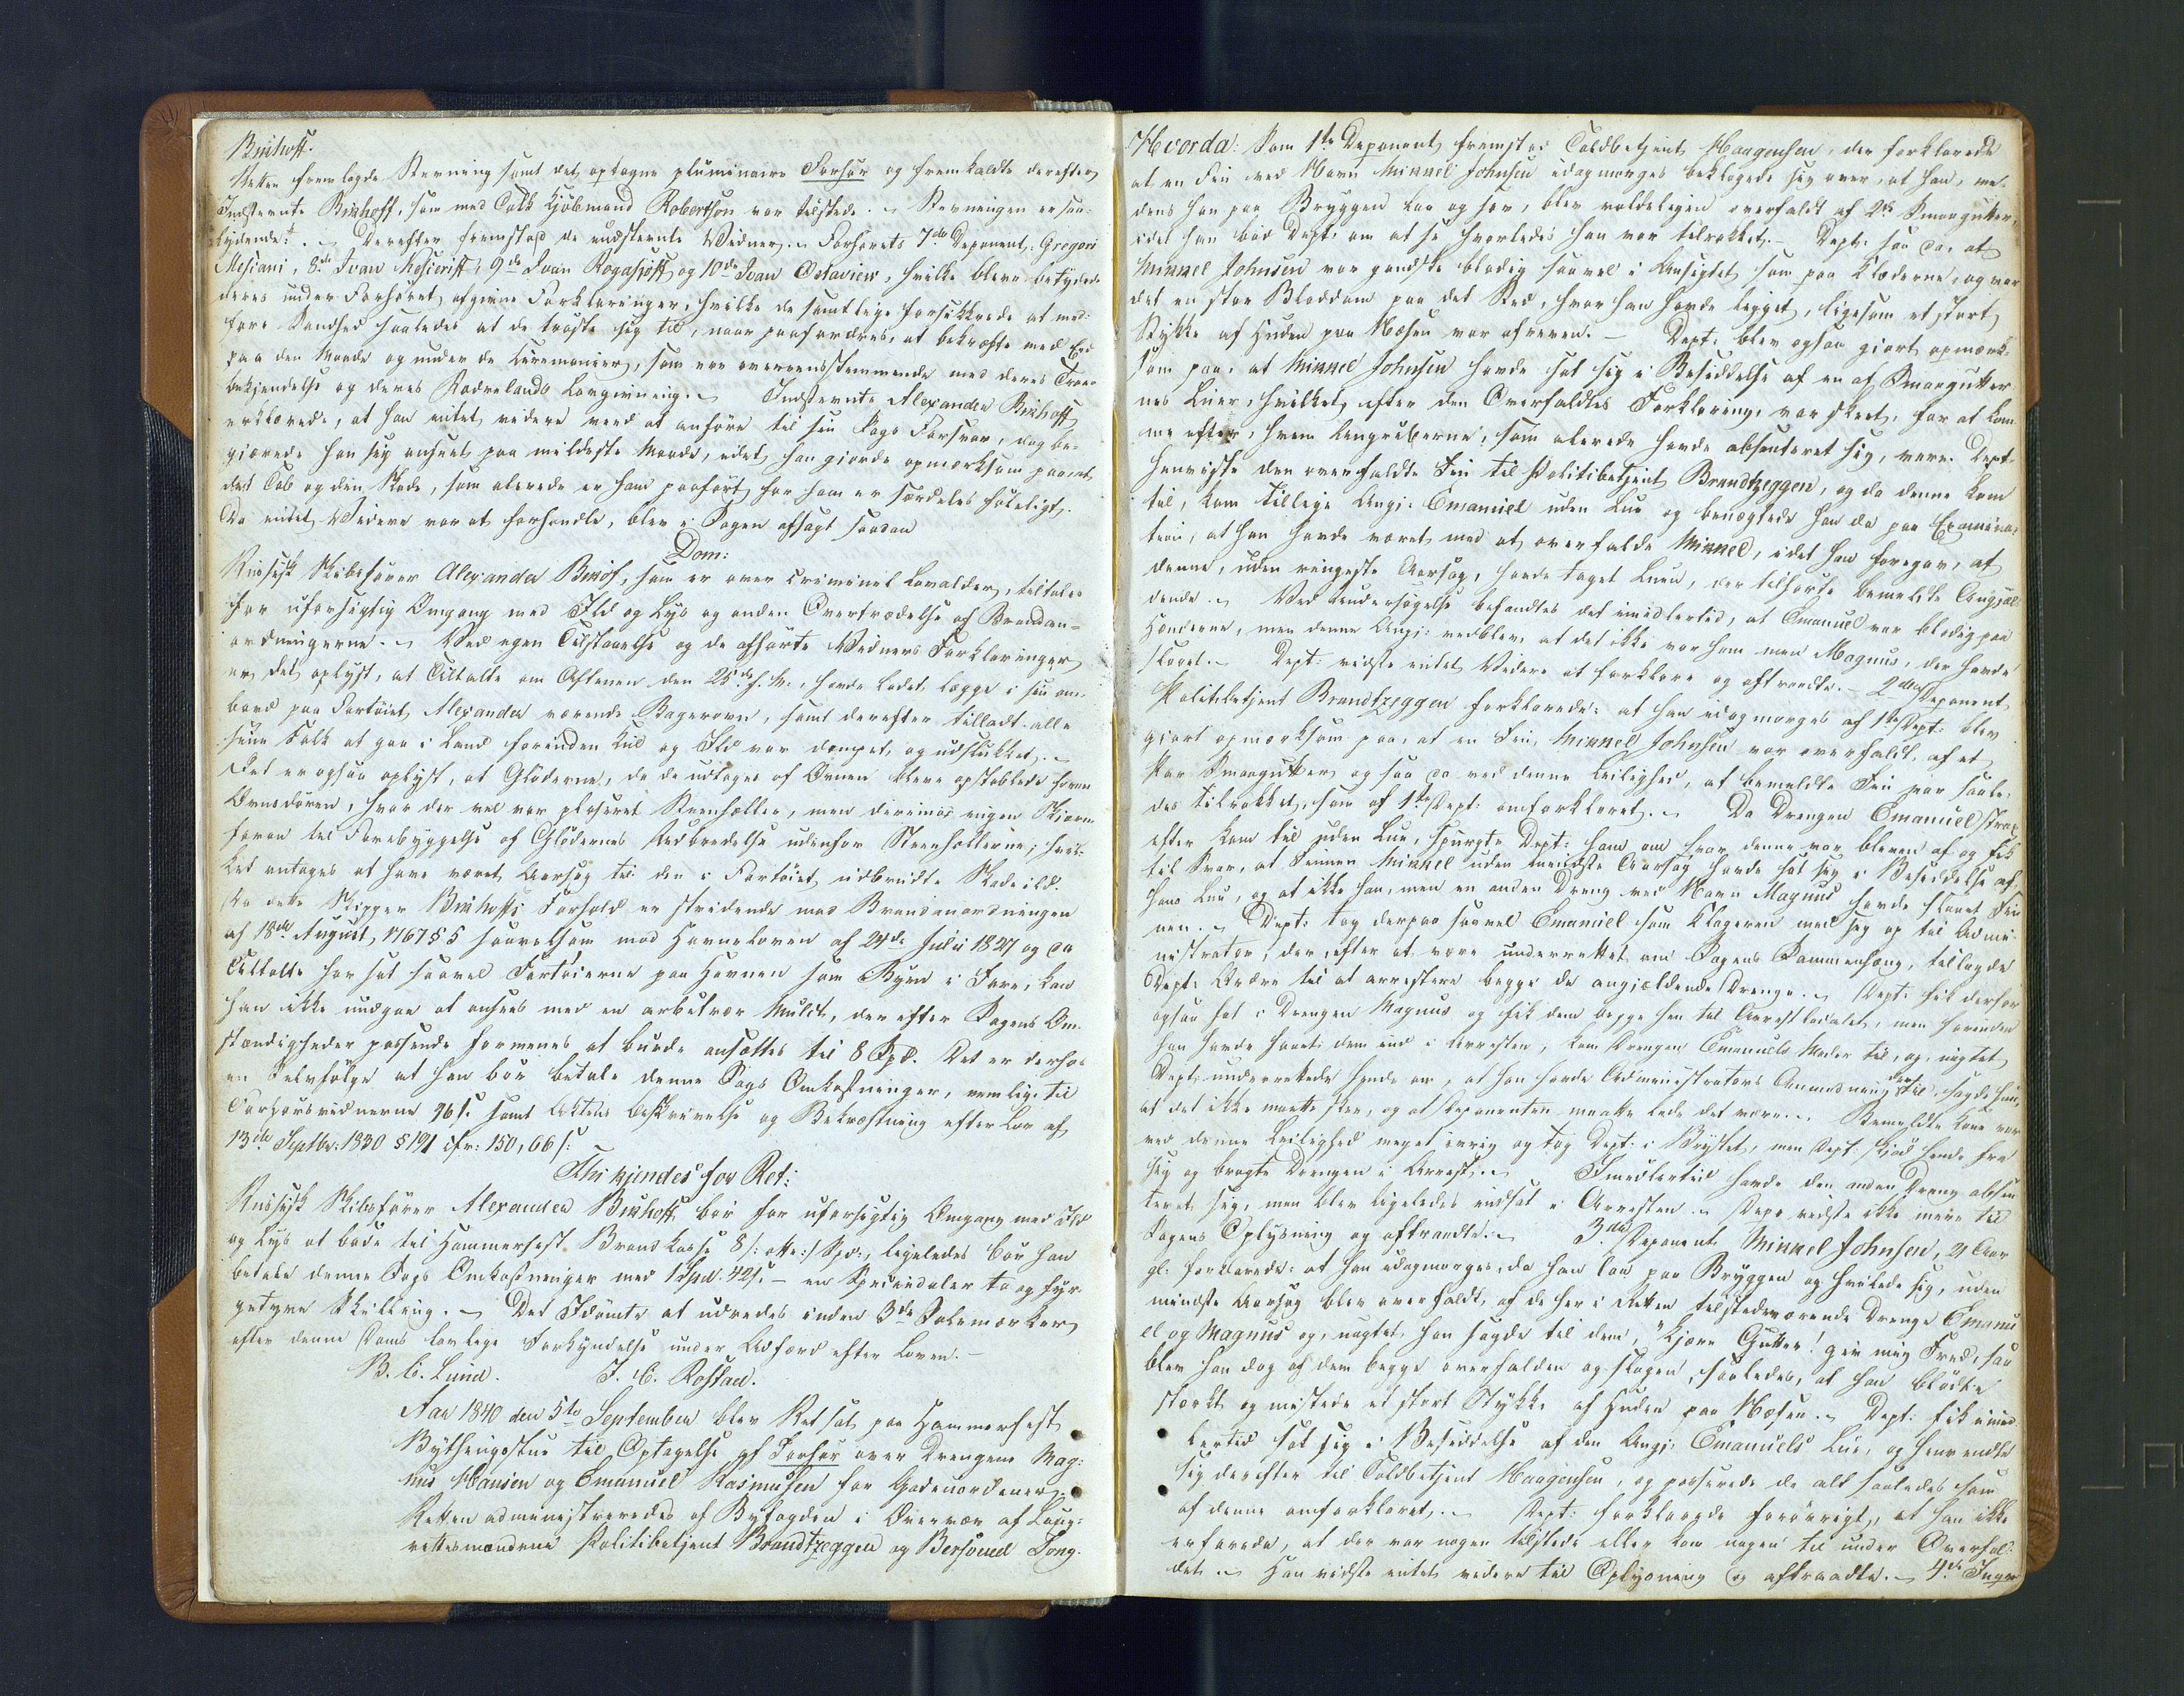 Binhoff.
Retten fremlagde Stevning samt det optagne pluminaire Forhør og fremkaldte derefter
Indstevnte Binhoff, som med Tolk Kjöbmand Robertson var tilstede. Stevningen er saa-
lydende: . Derefter fremstod de indstevnte Vidner. Forhørets 7de Deponent: Gregori
Mesiani, 8de Ivan, 9de Ivan Rogasjoff og 10de Ivan Octaview, hvilke bleve betydede
deres under Forhøret afgivne Forklaringer, hvilke de samtlige forsikkrede at med-
føre Sandhed saaledes at de trøste sig til, naar paafordres, at bekræfte med Eed
paa den Maade og under de Ceremonier, som var overeensstemmende med deres Troes
bekjendelse og deres Fædrelands Lovgivning. Indstevnte Alexander Binhoff
erklærede, at han intet videre veed at anføre til sin Sags Forsvar, dog be-
gjærede han sig anseet paa mildeste Maade, idet han gjorde opmærksom paa at
det Tab og den Skade, som alerede er ham paaført for ham er særdeles føleligt.
Da intet Videre var at forhandle, blev i Sagen afsagt saadan
Dom:
Russisk Skibsfører Alexander Binhof, som er over criminel Lavalder, tiltales
for uforsigtig Omgang med Ild og Lys og anden Overtrædelse af Brandan-
ordningerne. Ved egen Tilstaaelse og de afhørte Vidners Forklaringer
er det oplyst, at Tiltalte om Aftenen den 25de f. M., havde ladet lægge i sin om-
bord paa Fartøiet Alexander værende Bagerovn, samt derefter tilladt alle
sine Folk at gaa i Land forinden Kul og Ild var dæmpet og udslukket.
Det er ogsaa oplyst, at Gløderne, da de udtoges af Ovnen bleve opstablede foran
Ovnsdøren, hvor der vel var placeret Steenheller, men derimod ingen Skjærm
foran til Forebyggelse af Glødernes Udbredelse udenfor Steenhellerne; hvil-
ket antages at have været Aarsag til den i Fartøiet udbrudte Skadeild.
Da dette Skipper Binhoffs Forhold er stridende mod Brandanordningen
af 18de August 1767 § 5 saavelsom mod Havneloven af 24de Julii 1827 og da
Tiltalte har sat saavel Fartøierne paa Havnen som Byen i Fare, kan
han ikke undgaa at ansees med en arbitrær Mulct, der efter Sagens Om-
stændigheder passende formenes at burde ansættes til 8 Spd. Det er derhos
en Selvfølge at han bør betale denne Sags Omkostninger, nemlig til
Forhørsvidnerne 96 s. samt Aktens Beskrivelse og Bekræftning efter Lov af
13de Septbr: 1830 § 191 cfr: 150, 66 s:
Thi kjendes for Ret:
Russisk Skibsfører Alexander Binhoff bør for uforsigtig Omgang med Ild
og Lys at bøde til Hammerfest Brandkasse 8 /: otte :/ Spd:, ligeledes bør han
betale denne Sags Omkostninger med 1 Spd. 42 s. – en Speciedaler to og fyr-
getyve Skilling. – Det Idømte at udredes inden 3de Solemærker
efter denne Doms lovlige Forkyndelse under Adfærd efter Loven. –
B. C. Lund. J. C. Rostad.
Aar 1840 den 5te September blev Ret sat paa Hammerfest
Bythingsstue til Optagelse af Forhør over Drengene Mag-
nus Hansen og Emanuel Rasmusen for Gadeuordener.
Retten administreredes af Byfogden i Overvær af Laug-
rettesmændene Politibetjent Brandtzeggen og Bersvend Tong-
Hvorda: Som 1ste Deponent fremstod Toldbetjent Haagensen, der forklarede
at en Fin ved Navn Minnel Johnsen idagmorges beklagede sig over, at han, me-
dens han paa Bryggen laa og sov, blev voldeligen overfaldt af 2de Smaagutter,
idet han bad Dept: om at see hvorledes han var tilrakket. – Dept: saa da, at
Minnel Johnsen var gandske blodig saavel i Ansigtet som paa Klæderne, og var
det en stor Bloddam paa det Sted, hvor han havde ligget, ligesom et stort
Stykke af Huden paa Næsen var afreven. – Dept: blev ogsaa giort opmærk-
som paa, at Minnel Johnsen havde sat sig i Besiddelse af en af Smaagutter-
nes Luer, hvilket efter den Overfaldtes Forklaring, var skeet, for at kom-
me efter, hvem Angriberne, som alerede havde absenteret sig, vare. Dept
henviste den overfaldte Fin til Politibetjent Brandtzeggen, og da denne kom
til, kom tillige Angj: Emanuel uden Lue og benægtede han da paa Examina-
tion, at han havde været med at overfalde Minnel, idet han foregav, at
denne, uden ringeste Aarsag, havde taget Luen, der tilhørte bemeldte Angjæl-
dende. Ved Undersøgelse befandtes det imidlertid, at Emanuel var blodig paa
Hænderne, men denne Angj: vedblev, at det ikke var ham men Magnus, der havde
slaaet. – Dept: vidste intet Videre at forklare og aftraadte. – 2den Deponent
Politibetjent Brandtzeggen forklarede: at han idagmorges af 1ste Dept: blev
giort opmærksom paa, at en Fin, Minnel Johnsen var overfaldt, af et
Par Smaagutter og saa da ved denne Leilighed, at bemeldte Fin var saale-
des tilrakket, som af 1ste Dept: omforklaret. Da Drengen Emanuel strax
efter kom til uden Lue, spurgte Dept: ham om hvor denne var bleven af og fik
til Svar, at Finnen Minnel uden mindste Aarsag havde sat sig i Besiddelse af
hans Lue, og at ikke han, men en anden Dreng ved Navn Magnus havde slaaet Fin-
nen. Dept: tog derpaa saavel Emanuel som Klageren med sig op til Admi-
nistrator, der, efter at være underrettet om Sagens Sammenhæng, tillagde
Dept: Ordre til at arrestere begge de angjældende Drenge. Dept: fik derfor
ogsaa fat i Drengen Magnus og fik dem begge hen til Arrestlocalet, men forinden
han havde faaet dem ind i Arresten, kom Drengen Emanuels Moder til, og, uagtet
Dept: underrettede hende om, at han havde Administrators Anmodning dertil, sagde hun,
at det ikke maatte skee, og at Deponenten maatte lade det være. Bemeldte Kone var
ved denne Leilighed meget ivrig og tog Dept: i Brystet, men Dept: skjød hende fra
sig og bragte Drengen i Arrest. Imidlertid havde den anden Dreng absen-
teret sig, men blev ligeledes indsat i Arresten. Dept vidste ikke mere til
Sagens Oplysning og aftraadte. 3die Deponent Minnel Johnsen, 21 Aar
gl: forklarede: at han idagmorges, da han laae paa Bryggen og hvilede sig, uden
mindste Aarsag blev overfaldt, af de her i Retten tilstedeværende Drenge Emanu-
el og Magnus og, uagtet han sagde til dem, "Kjære Gutter! giv mig Fred, saa
blev han dog af dem begge overfalden og slagen, saaledes, at han blødte
stærkt og mistede et stort Stykke af Huden paa Næsen. Dept: fik imid-
lertid sat sig i Besiddelse af den Angj. Emanuels Lue, og henvendte
sig derefter til Toldbetjent Haagensen, og passerede da alt saaledes som
af denne omforklaret. Dept: forklarede forøvrigt, at han ikke
erfarede, at der var nogen tilstede eller kom nogen til under Overfal-
det. Han vidste intet videre til Oplysning og aftraadte. – 4de